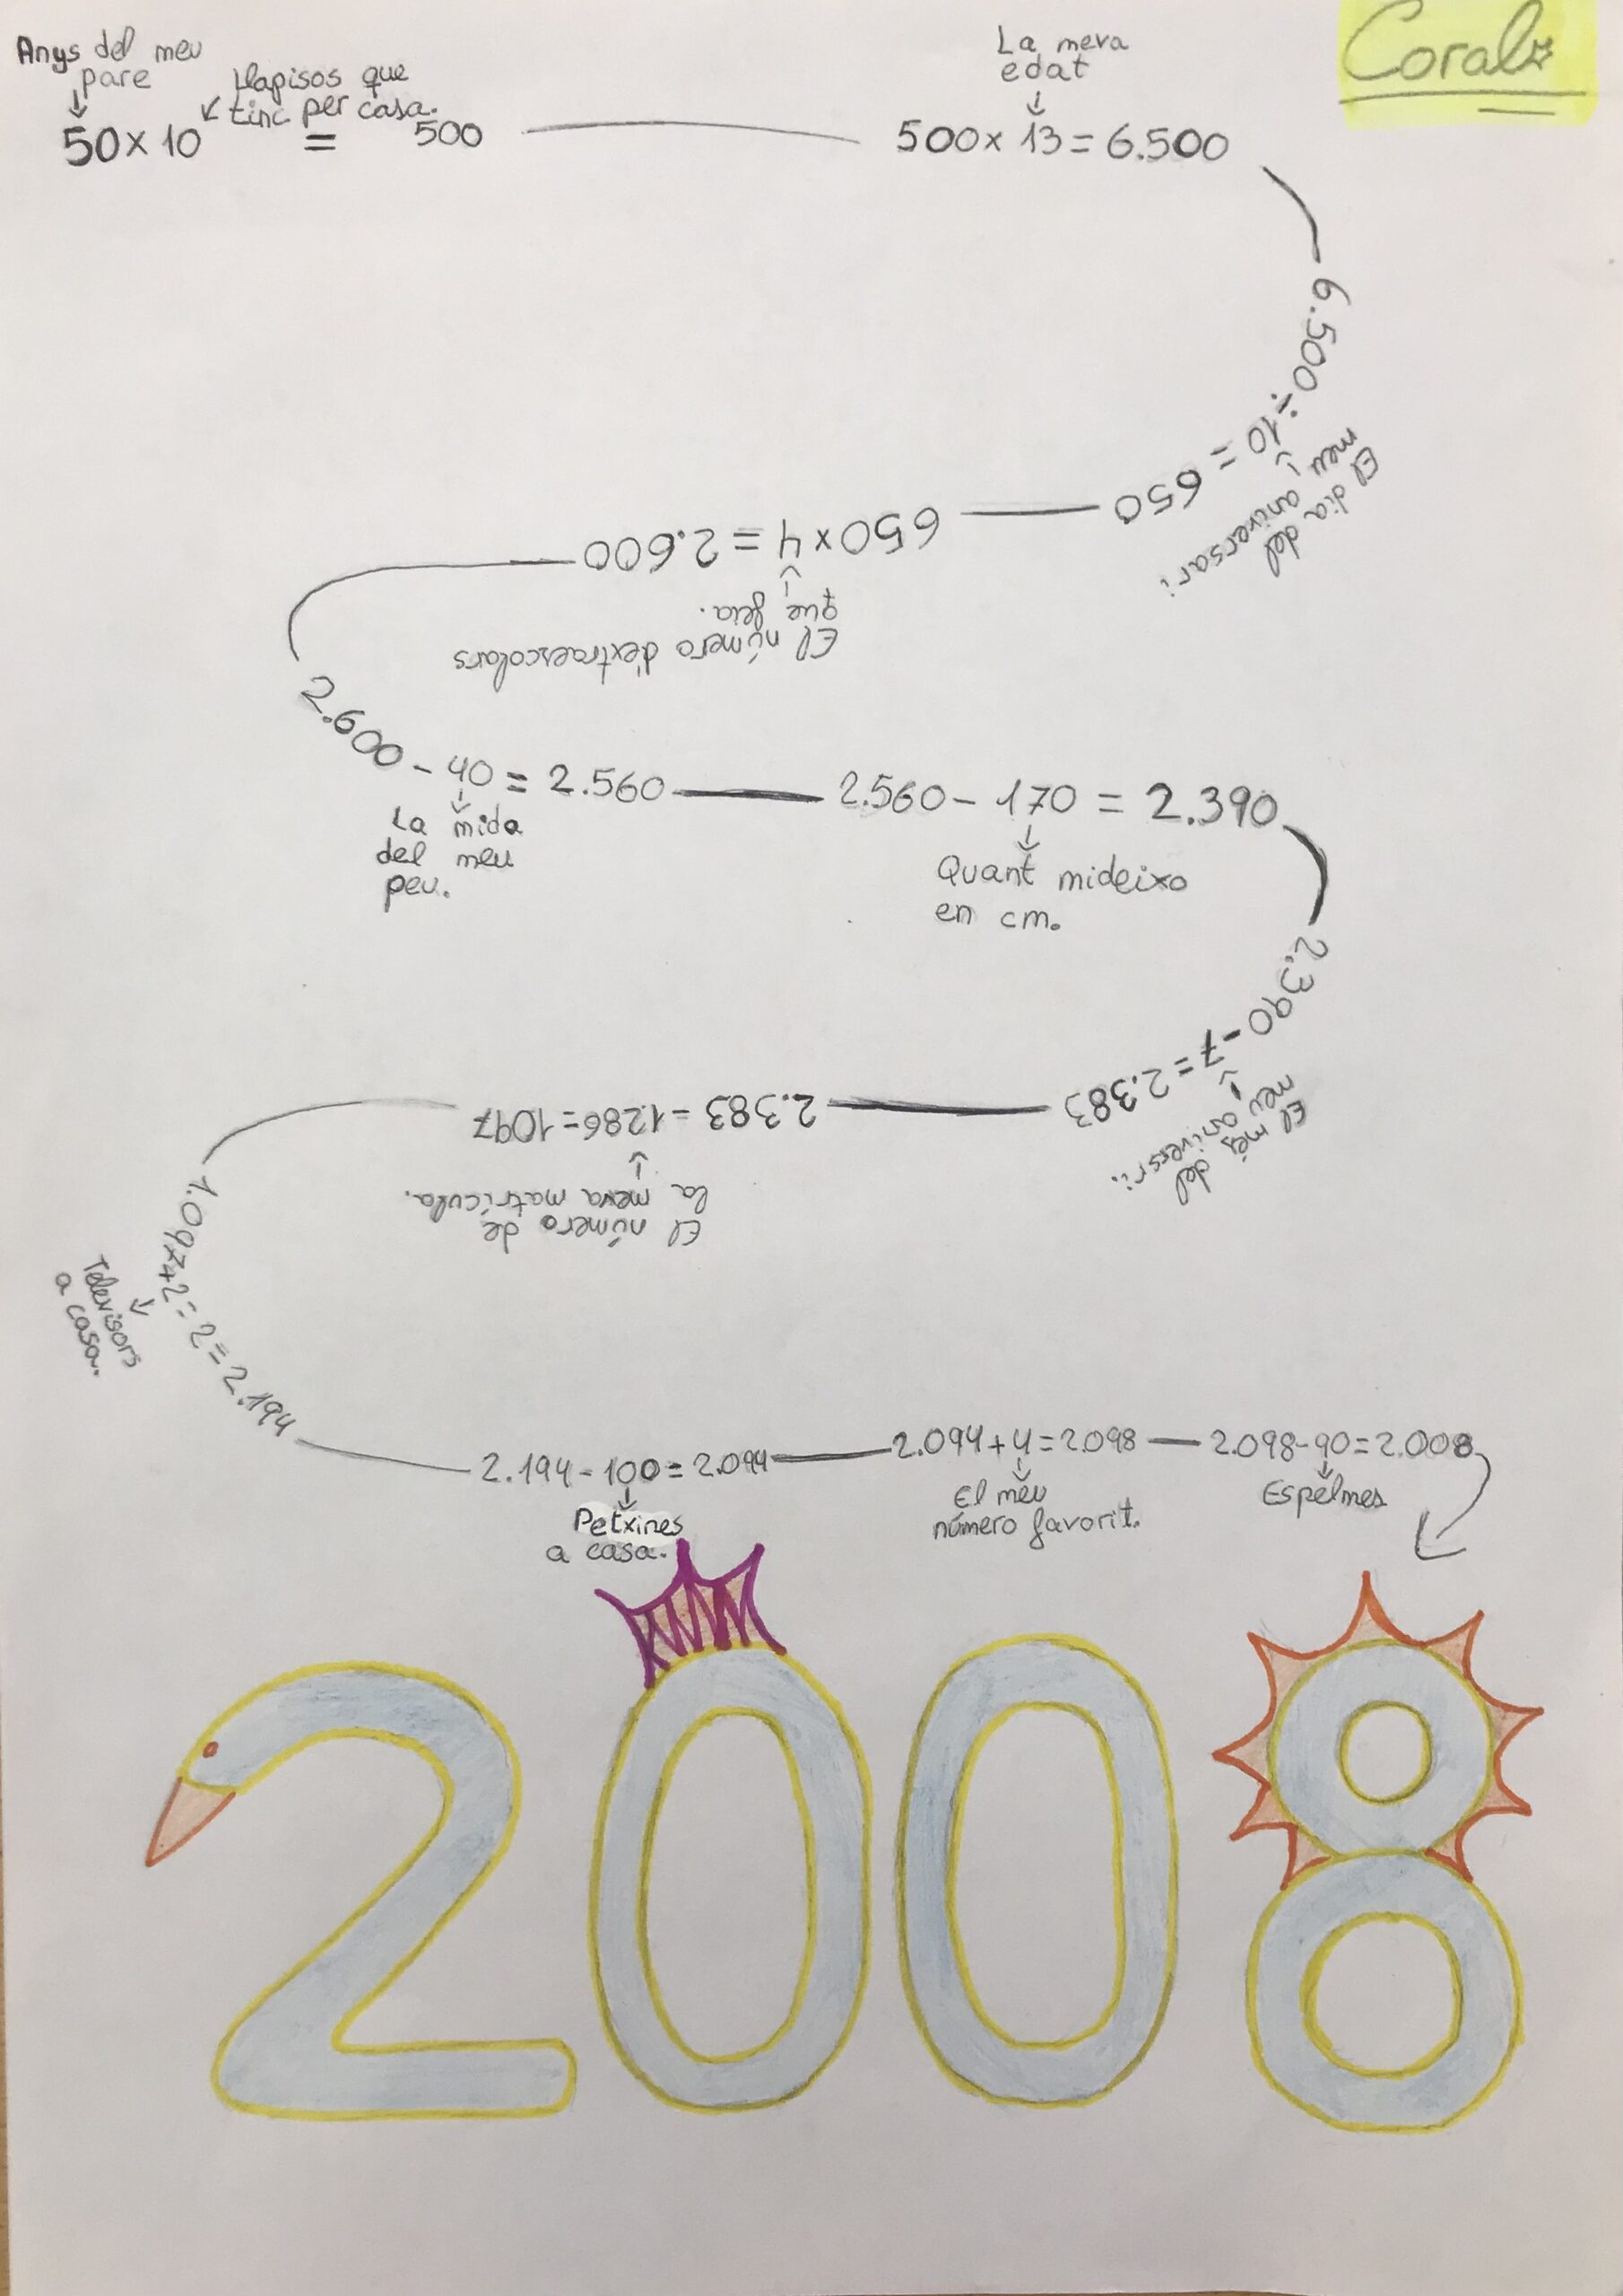 Coral
Anys del meu
pare
Llapisos que
tinc per casa.
50 x 10 = 500
La meva
edat
500 x 13 = 6.500
6.500 ÷ 10 = 650
El dia del
meu aniversari
650 x 4 = 2.600
El número d'extraescolars
que feia.
2.600 - 40 = 2.560
La mida
del meu
peu.
2.560 - 170 = 2.390
Quant mideixo
en cm.
2.390 - 7 = 2.383
El més del
meu aniversri.
2.383 - 1.286 = 1097
El número de
la meva matrícula.
Televisors
a casa.
2.194 - 100 = 2.094
Petxines
a casa.
2.094 + 4 = 2.098
El meu
número favorit.
2.098 - 90 = 2.008
Espelmes
2008